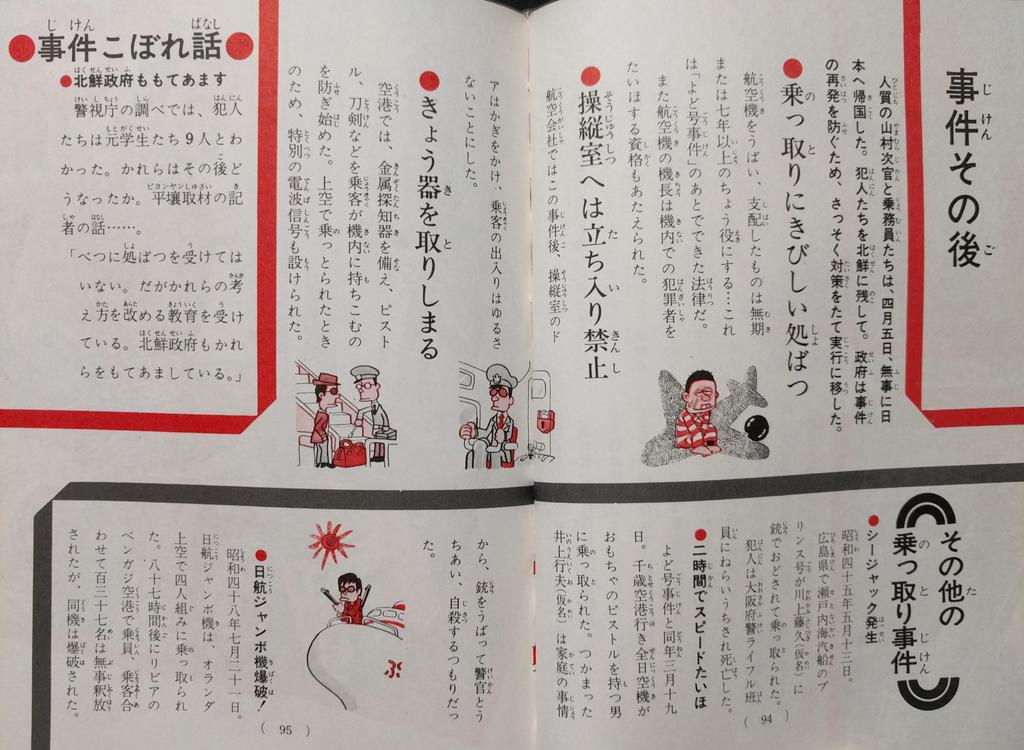 事件その後
人質の山村次官と乗務員たちは、四月五日、無事に日
本へ帰国した。犯人たちを北鮮に残して。政府は事件
の再発を防ぐため、さっそく対策をたて実行に移した。
●乗っ取りにきびしい処ばつ
航空機をうばい、支配したものは無期
または七年以上のちょう役にする…これ
は「よど号事件」のあとでできた法律だ。
また航空機の機長は機内での犯罪者を
たいほする資格もあたえられた。
●操縦室へは立ち入り禁止
航空会社ではこの事件後、操縦室のド
アはかぎをかけ、乗客の出入りはゆるさ
ないことにした。
●きょう器を取りしまる
空港では、金属探知器を備え、ピスト
ル、刀剣などを乗客が機内に持ちこむの
を防ぎ始めた。上空で乗っとられたとき
のため、特別の電波信号も設けられた。
●事件こぼれ話●
●北鮮政府ももてあます
警視庁の調べでは、犯人
たちは元学生たち9人とわ
かった。かれらはその後ど
うなったか。平壌取材の記
者の話……。
「べつに処ばつを受けては
いない。だがかれらの考
え方を改める教育を受け
ている。北鮮政府もかれ
らをもてあましている。」
その他の
乗っ取り事件
●シージャック発生
昭和四十五年五月十三日。
広島県で瀬戸内海汽船のプ
リンス号が川上藤久(仮名)に
銃でおどされて乗っ取られた。
犯人は大阪府警ライフル班
員にねらいうちされ死亡した。
●二時間でスピードたいほ
よど号事件と同年三月十九
日。千歳空港行き全日空機が
おもちゃのピストルを持つ男
に乗っ取られた。つかまった
井上行夫(仮名)は家庭の事情
から、銃をうばって警官とう
ちあい、自殺するつもりだっ
た。
ぷ
●日航ジャンボ機爆破!
昭和四十八年七月二十一日。
日航ジャンボ機は、オランダ
上空で四人組みに乗っ取られ
た。八十七時間後にリビアの
ベンガジ空港で乗員、乗客合
わせて百三十七名は無事釈放
されたが、同機は爆破された。
(94)
(95)